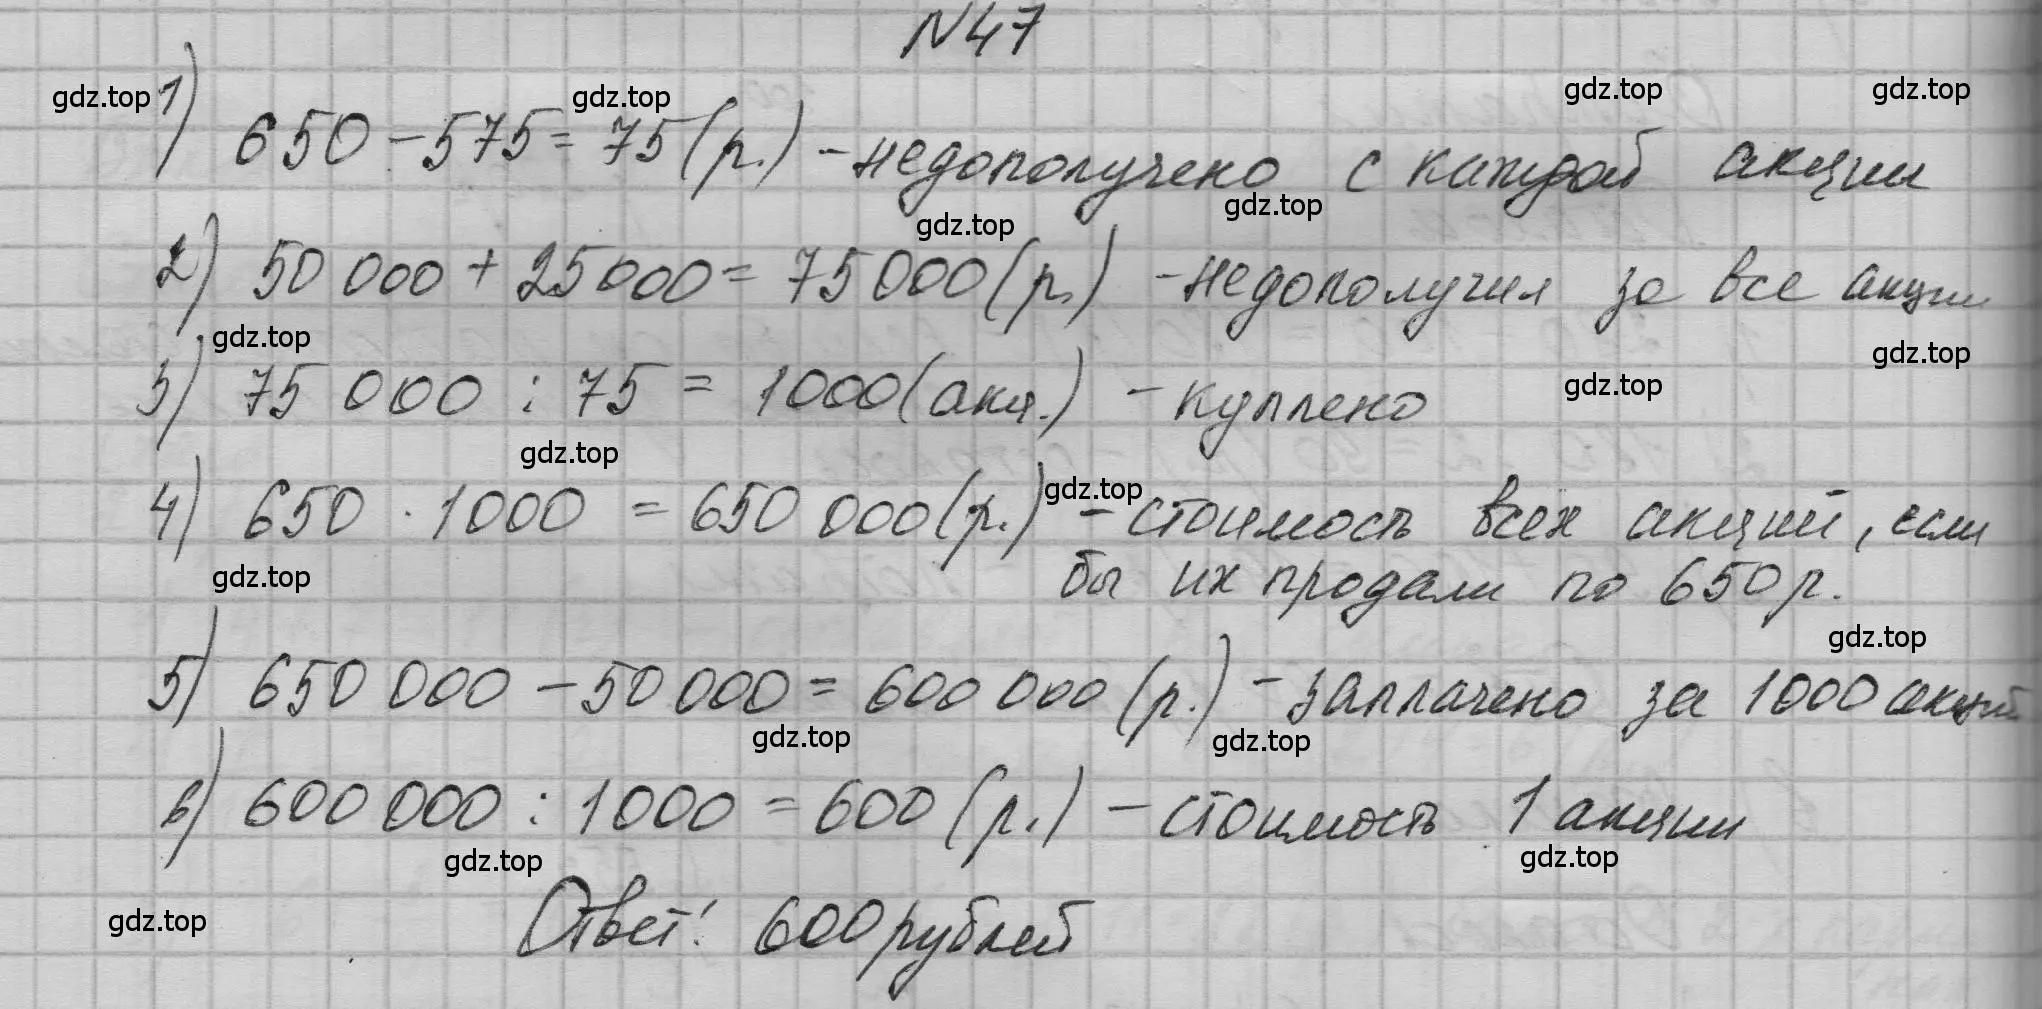 N47
gdz.top gdz.top gdz.top gdz.top
1) 650 - 575 = 75 (р.) - недополучено с каждой акции
gdz.top gdz.top
2) 50 000 + 25000 = 75000 (р.) - недополучил за все акции
gdz.top gdz.top
3) 75 000 : 75 = 1000 (акц.) - куплено
gdz.top
gdz.top gdz.top
4) 650 · 1000 = 650 000 (р.) - стоимость всех акций, если
бы их продали по 650 р.
gdz.top gdz.top
5) 650 000 - 50 000 = 600 000 (р.) - заплачено за 1000 акций
gdz.top gdz.top
6) 600 000 : 1000 = 600 (р.) - стоимость 1 акции
gdz.top gdz.top
gdz.top
Ответ: 600 рублей